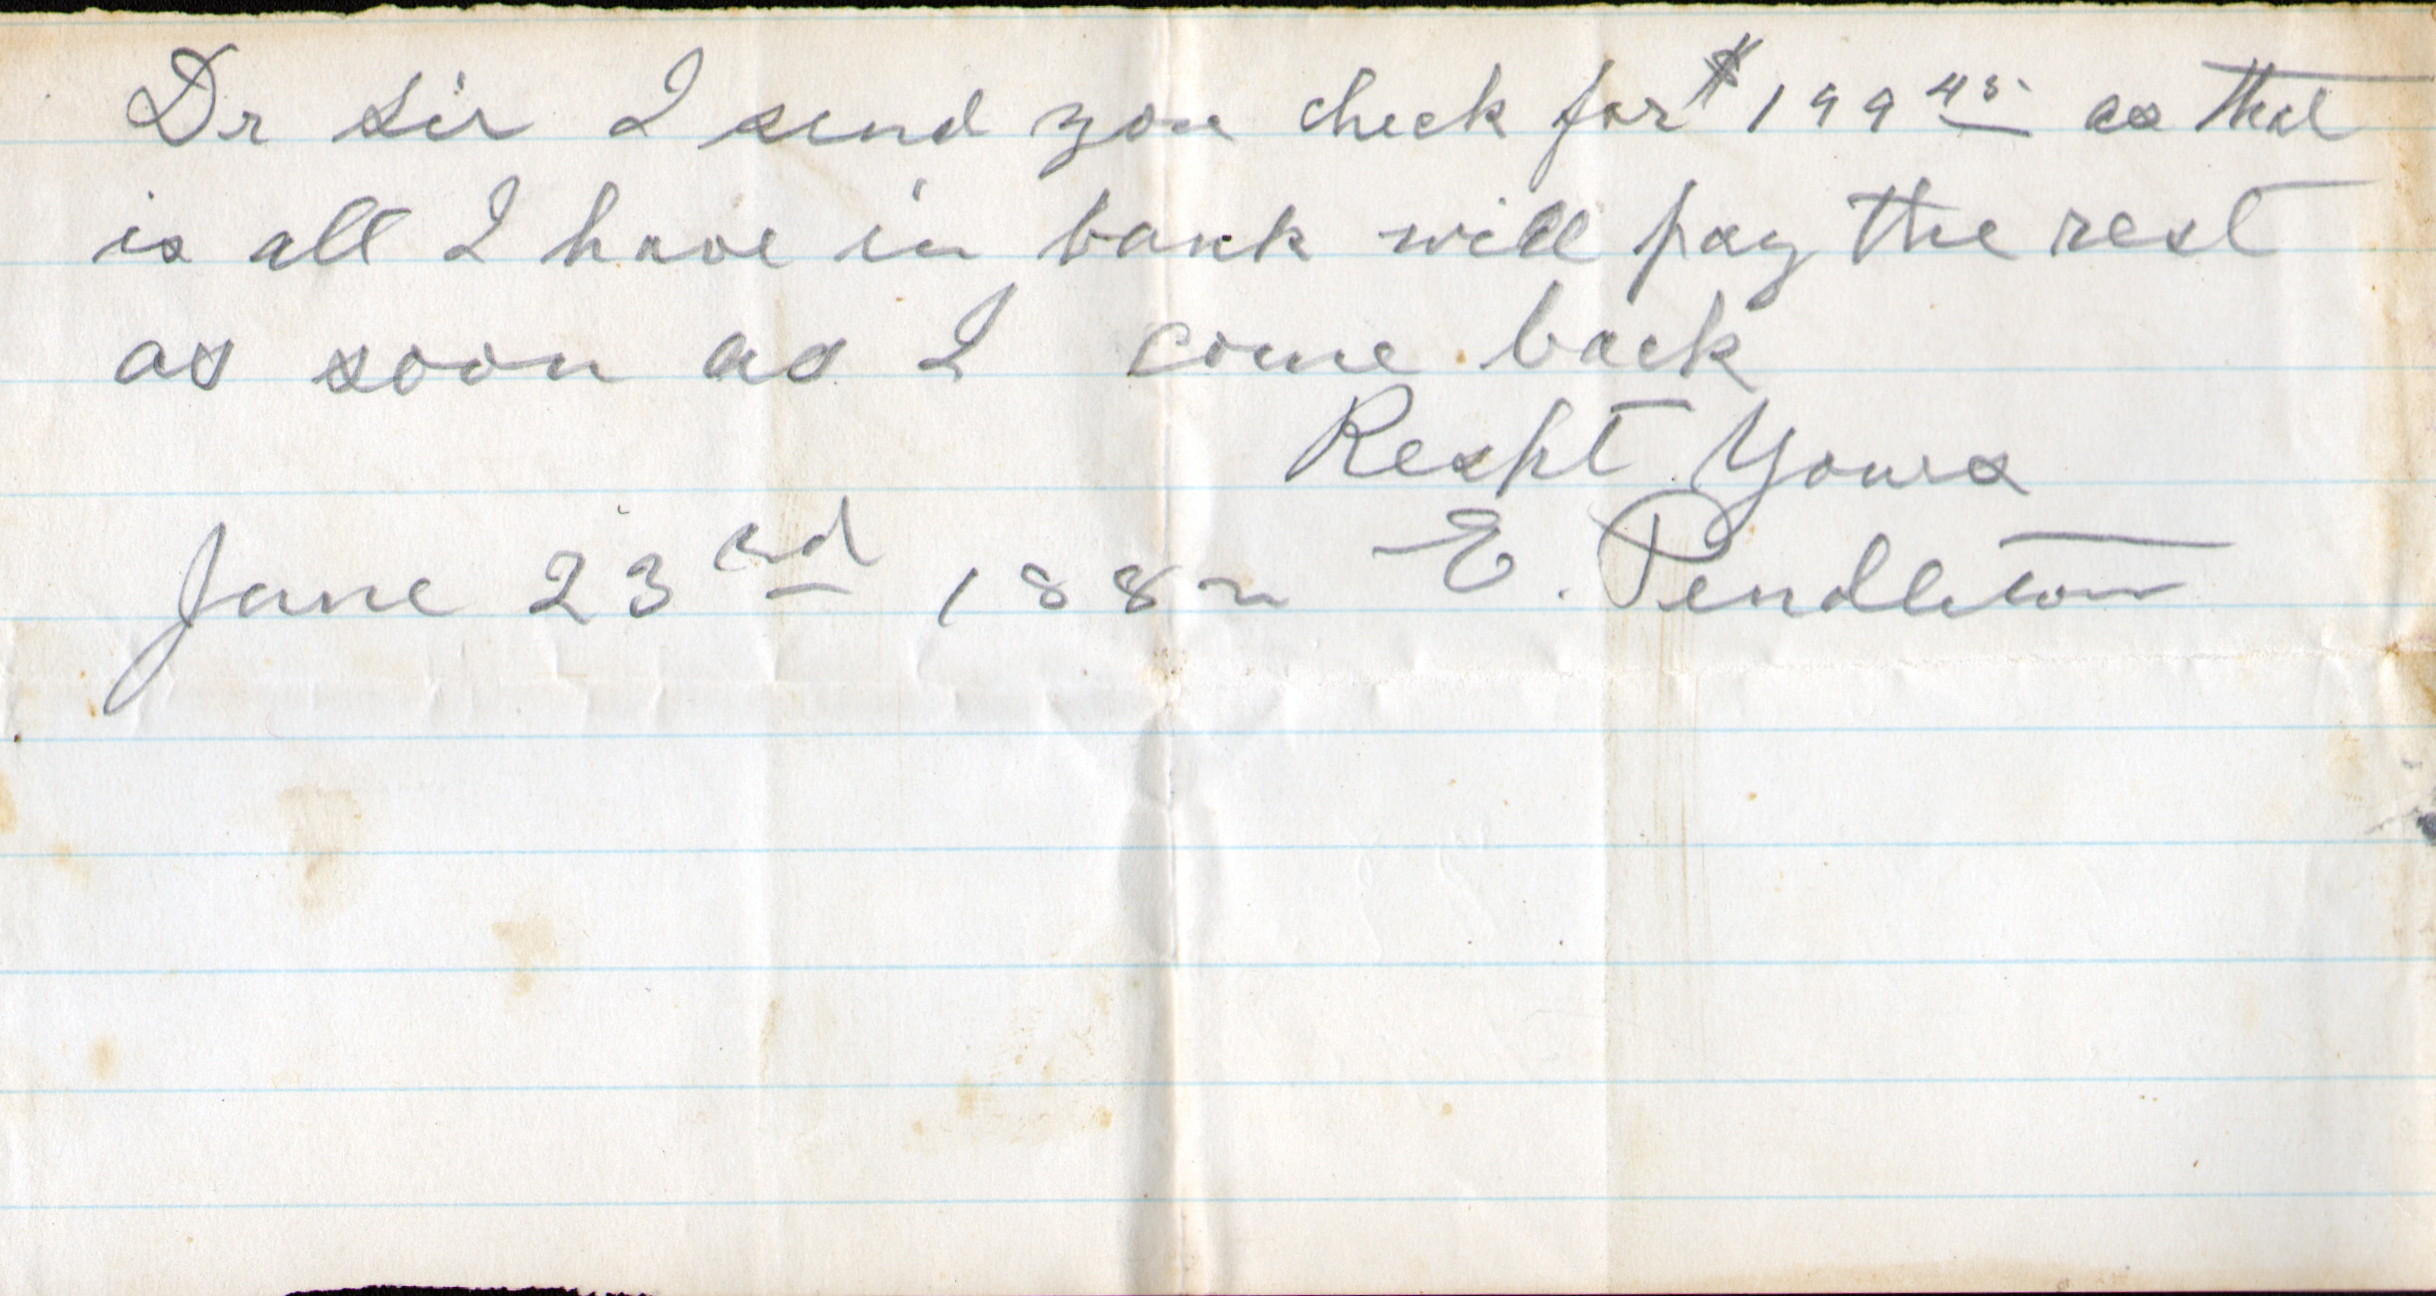 Dr Sir I send you check for $199 45 as that
is all I have in bank will pay the rest
as soon as I come back
Respt Yours
June 23rd 1882 E. Pendleton